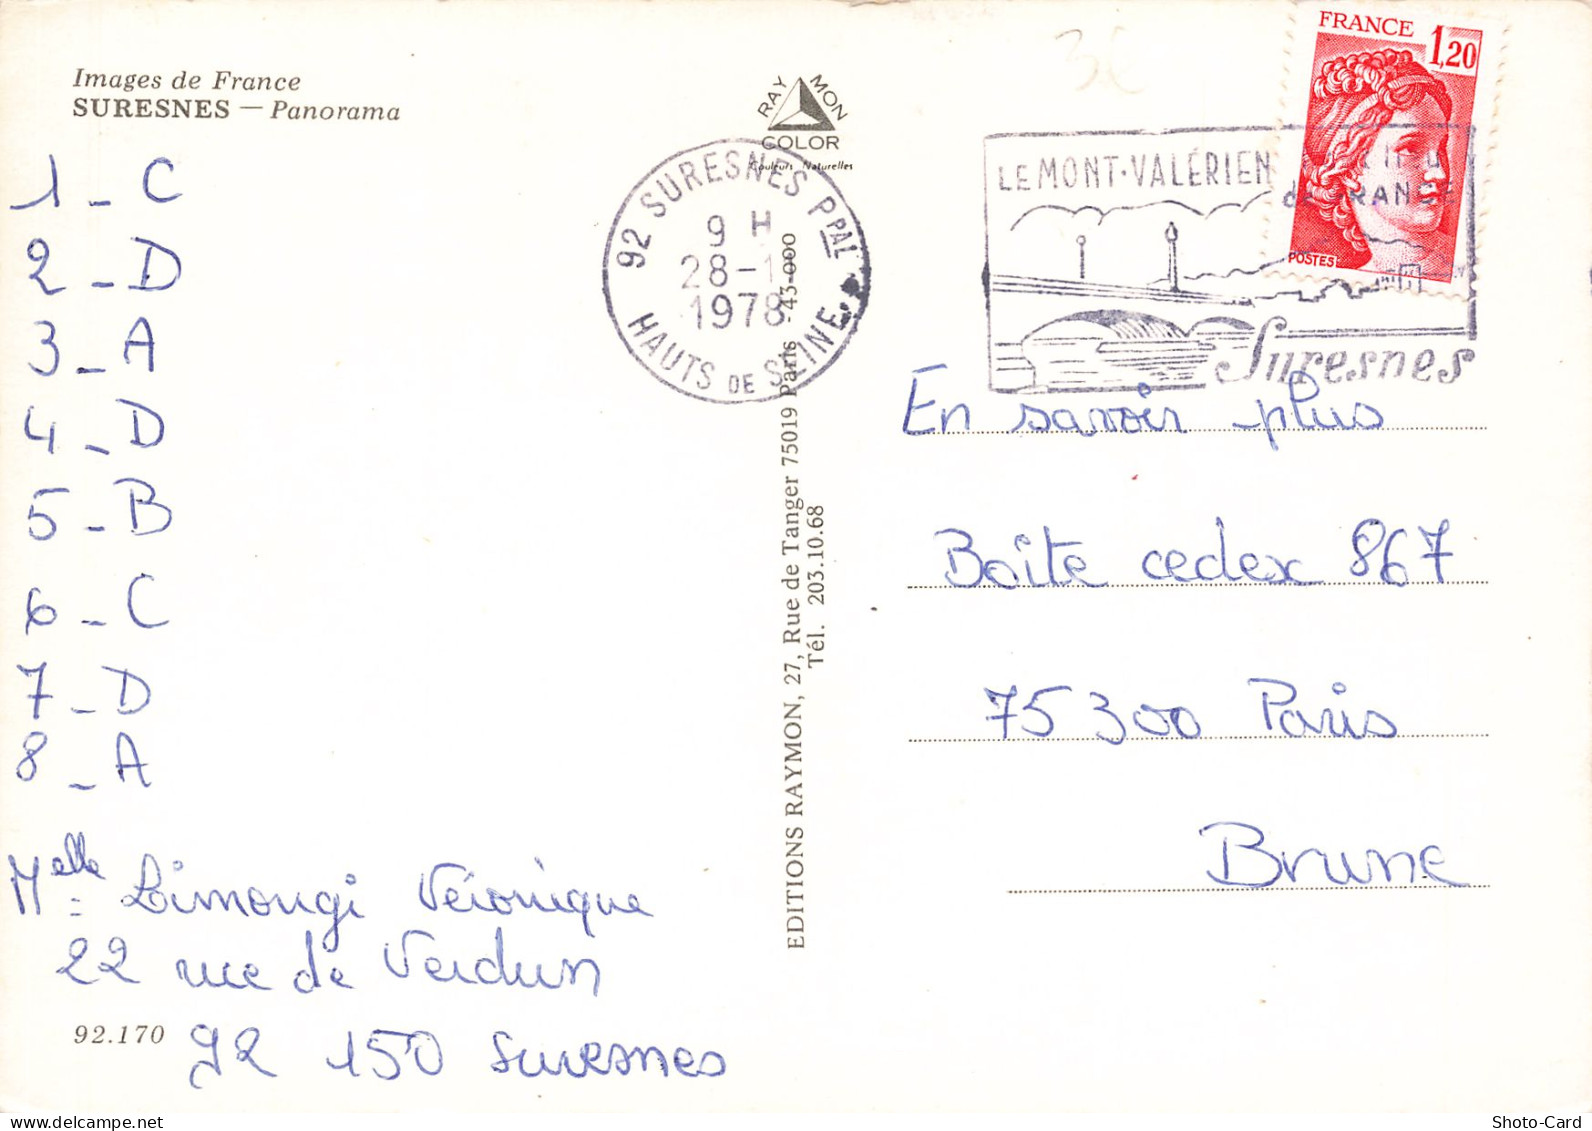 Images de France
SURESNES — Panorama
1 - C
2 - D
3 - A
4 - D
5 - B
6 - C
7 - D
8 - A
Melle Limongi Véronique
22 rue de Verdun
92.170
92 150 Suresnes
RAYMON
COLOR
Couleurs Naturelles
92 SURESNES PPAL
9 H
28-1
1978
HAUTS DE SEINE
EDITIONS RAYMON, 27, Rue de Tanger 75019 Paris - 43-000
Tél. 203.10.68
3€
FRANCE
1,20
POSTES
LE MONT-VALÉRIEN
de FRANCE
Suresnes
En savoir plus
Boîte cedex 867
75300 Paris
Brune
Shoto-Card